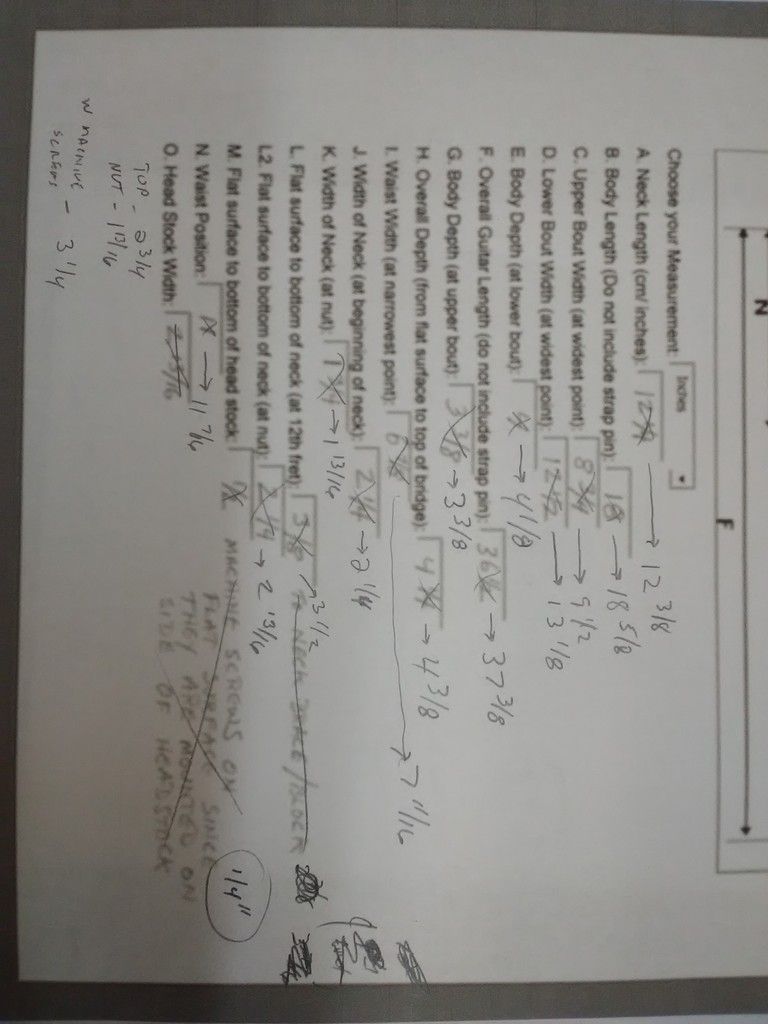 N
F
Choose your Measurement: Inches
A. Neck Length (cm/ inches): → 12 3/8
B. Body Length (Do not include strap pin): 18 → 18 5/8
C. Upper Bout Width (at widest point): 8 3/4 → 9 1/2
D. Lower Bout Width (at widest point): 12 1/2 → 13 1/8
E. Body Depth (at lower bout): → 4 1/8
F. Overall Guitar Length (do not include strap pin): → 37 3/8
G. Body Depth (at upper bout): 3 3/8 → 3 3/8
H. Overall Depth (from flat surface to top of bridge): → 4 3/8
I. Waist Width (at narrowest point): → 7 11/16
J. Width of Neck (at beginning of neck): 2 1/4 → 2 1/4
K. Width of Neck (at nut): 1 3/4 → 1 13/16
L. Flat surface to bottom of neck (at 12th fret): → 3 1/2 TO NECK
L2. Flat surface to bottom of neck (at nut): 2 1/4 → 2 13/16
M. Flat surface to bottom of head stock: MACHINE SCREWS ON 1/4"
FLAT SURFACE SINCE
THEY ARE MOUNTED ON
SIDE OF HEADSTOCK
N. Waist Position: → 11 7/16
O. Head Stock Width:
TOP - 2 3/4
NUT - 1 13/16
W MACHINE
SCREWS - 3 1/4